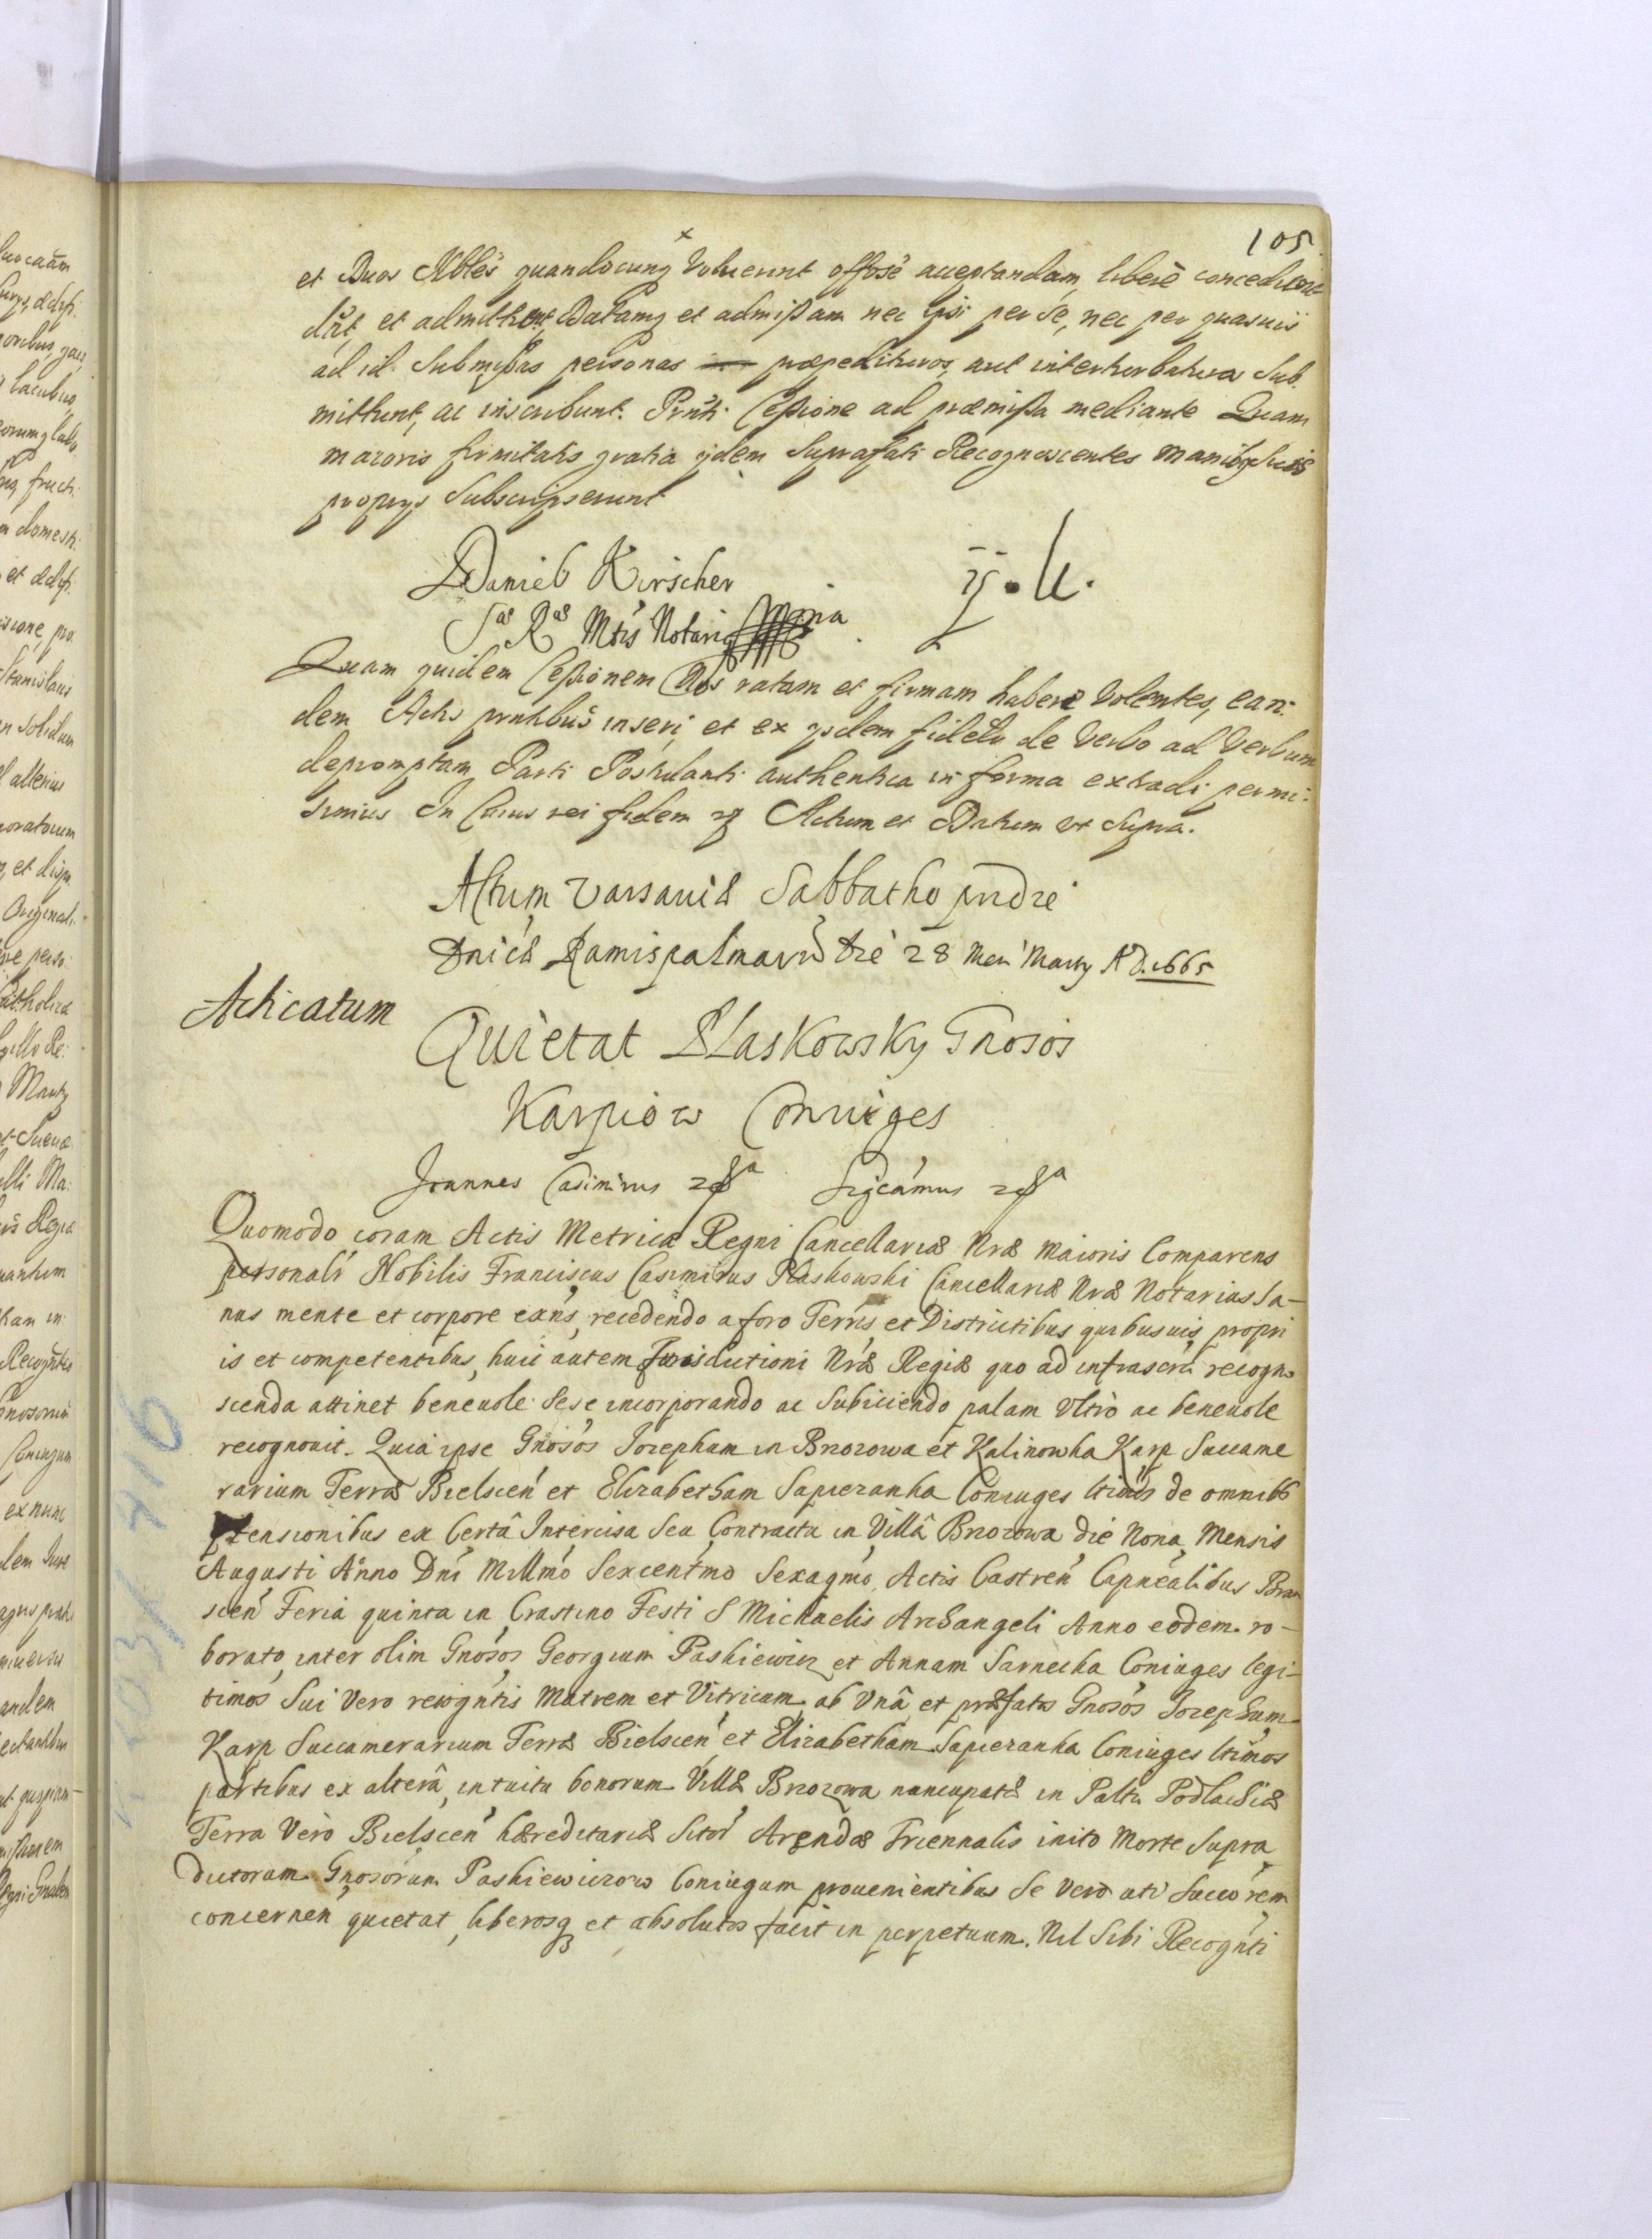 105
et Duos Nobles quandocunq voluerint offose acceptandam, libere concedent
dut, et admittent, Datamq et admißam nec ipsi per se, nec per quasuis
ad id Submißas personas præpedituros, aut interturbaturos Sub
mittunt, ac inscribunt. Pnti Ceßione ad præmißa mediante Quam
maioris firmitatis gratia ijdem Suprafati Recognoscentes manibq Suis
proprys Subscripserunt
Daniel Kirscher
S R Mtis Notariq mpria
Quam quidem Ceßionem Nos ratam et firmam habere Volentes, ean:
dem Actis pntibus inseri, et ex ysdem fideli de Verbo ad Verbum
depromptam Parti Postulanti authentica in forma extradi permi:
simus In Cuius rei fidem Actum et Datum ut Supra.
Actum Varsaviæ Sabbatho pridie
Dnicæ Ramispalmarū die 28 Men Marty A D. 1665
Acticatum
Quietat PLaskowsky Gnosos
Karpiow Coniuges
Joannes Casimirus Sigcámus
Quomodo coram Actis Metricæ Regni Cancellariæ Nræ maioris Comparens
personalr Nobilis Franciscus Casimirus Plaskowski Cancellariæ Nræ Notarius Sa-
nus mente et corpore exns, recedendo a foro Terris et Districtibus quibusuis propri
is et competentibus, huic autem Jurisdictioni Nræ Regiæ quo ad infrascrā recogno
scenda attinet beneuole sese incorporando ac Subiiciendo palam Ultro ac beneuole
recognouit. Quia ipse Gnosos Josephum in Brzozowa et Kalinowka Karp Succame
rarium Terræ Bielscen et Elizabetham Sapiezanka Coniuges ltimos de omnibq
ptensionibus ex Certâ Intercisa Seu Contractu in Villâ Brzozowa die Nona Mensis
Augusti Anno Dni Millmo Sexcentmo Sexagmo, Actis Castren Capnealibus Bran
scen Feria quinta in Crastino Festi S Michaelis Archangeli Anno eodem ro-
borato, inter olim Gnosos Georgium Paskiewicz et Annam Sarnecka Coniuges legi-
timos Sui Vero recogntis Matrem et Vitricum ab Unâ, et præfatos Gnosos Josephum
Karp Succamerarium Terræ Bielscen et Elizabetham Sapiezanka Coniuges ltimos
partibus ex alterâ, intuitu bonorum Villæ Brzozowa nuncupatæ in Paltu Podlachiæ
Terra Vero Bielscen hæreditariæ Sitor Arendæ Triennalis inito Morte Supra
dictorum Gnosorum Paskiewiczow Coniugum prouenientibus Se Vero uti Succorem
concernen quietat, liberosq et absolutos facit in perpetuum. Nil Sibi Recognti